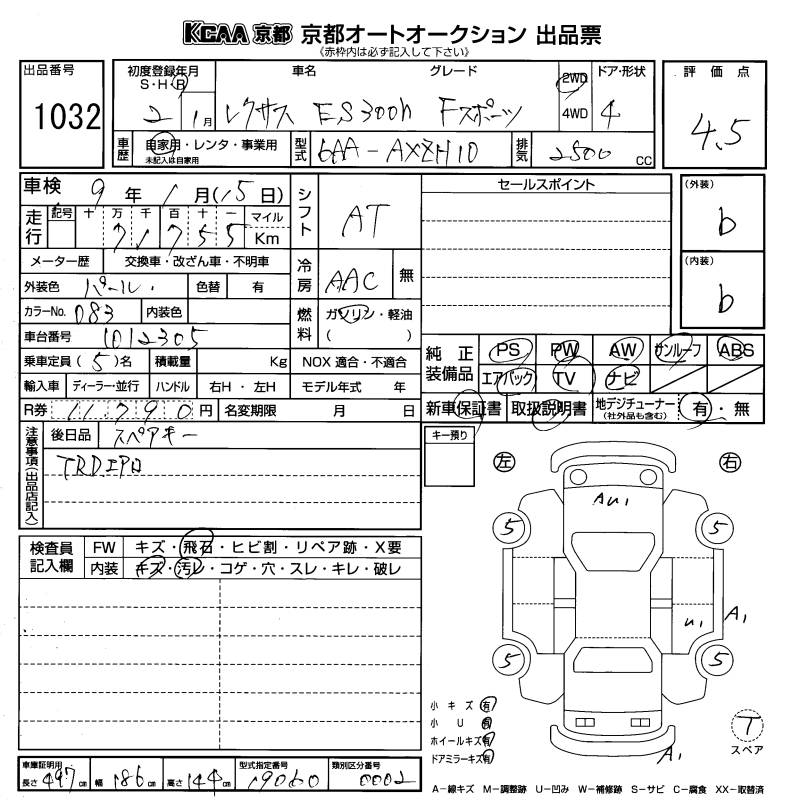 KCAA 京都 京都オートオークション 出品票
《赤枠内は必ず記入して下さい》
出品番号
1032
初度登録年月 車名 グレード 2WD ドア・形状 評価点
S・H・R
2 1月 レクサス ES300h Fスポーツ 4WD 4 4.5
車歴 自家用・レンタ・事業用 型式 6AA-AXZH10 排気 2500 CC
未記入は自家用
車検 9年 1月(15日) シフト AT セールスポイント (外装)
b
走行 記号 十 万 千 百 十 一 マイル
71755 Km
メーター歴 交換車・改ざん車・不明車 冷房 AAC 無 (内装)
b
外装色 パール 色替 有
カラーNo. 083 内装色 燃料 ガソリン・軽油
( )
車台番号 1012305
乗車定員 (5)名 積載量 Kg NOX 適合・不適合
純正装備品 PS PW AW サンルーフ ABS
エアバック TV ナビ
輸入車 ディーラー・並行 ハンドル 右H・左H モデル年式 年
R券 11790円 名変期限 月 日
新車保証書 取扱説明書 地デジチューナー(社外品も含む) 有・無
注意事項(出品店記入) 後日品 スペアキー
TRDエアロ
キー預り
左 右
検査員記入欄 FW キズ・飛石・ヒビ割・リペア跡・X要
内装 キズ・汚レ・コゲ・穴・スレ・キレ・破レ
AU1
5 5
U1 A1
5 5
小キズ 有
小U 有
ホイールキズ 有
ドアミラーキズ 有
A1
T
スペア
車庫証明用 長さ 497cm 幅 186cm 高さ 144cm 型式指定番号 19060 類別区分番号 0002
A-線キズ M-調整跡 U-凹み W-補修跡 S-サビ C-腐食 XX-取替済